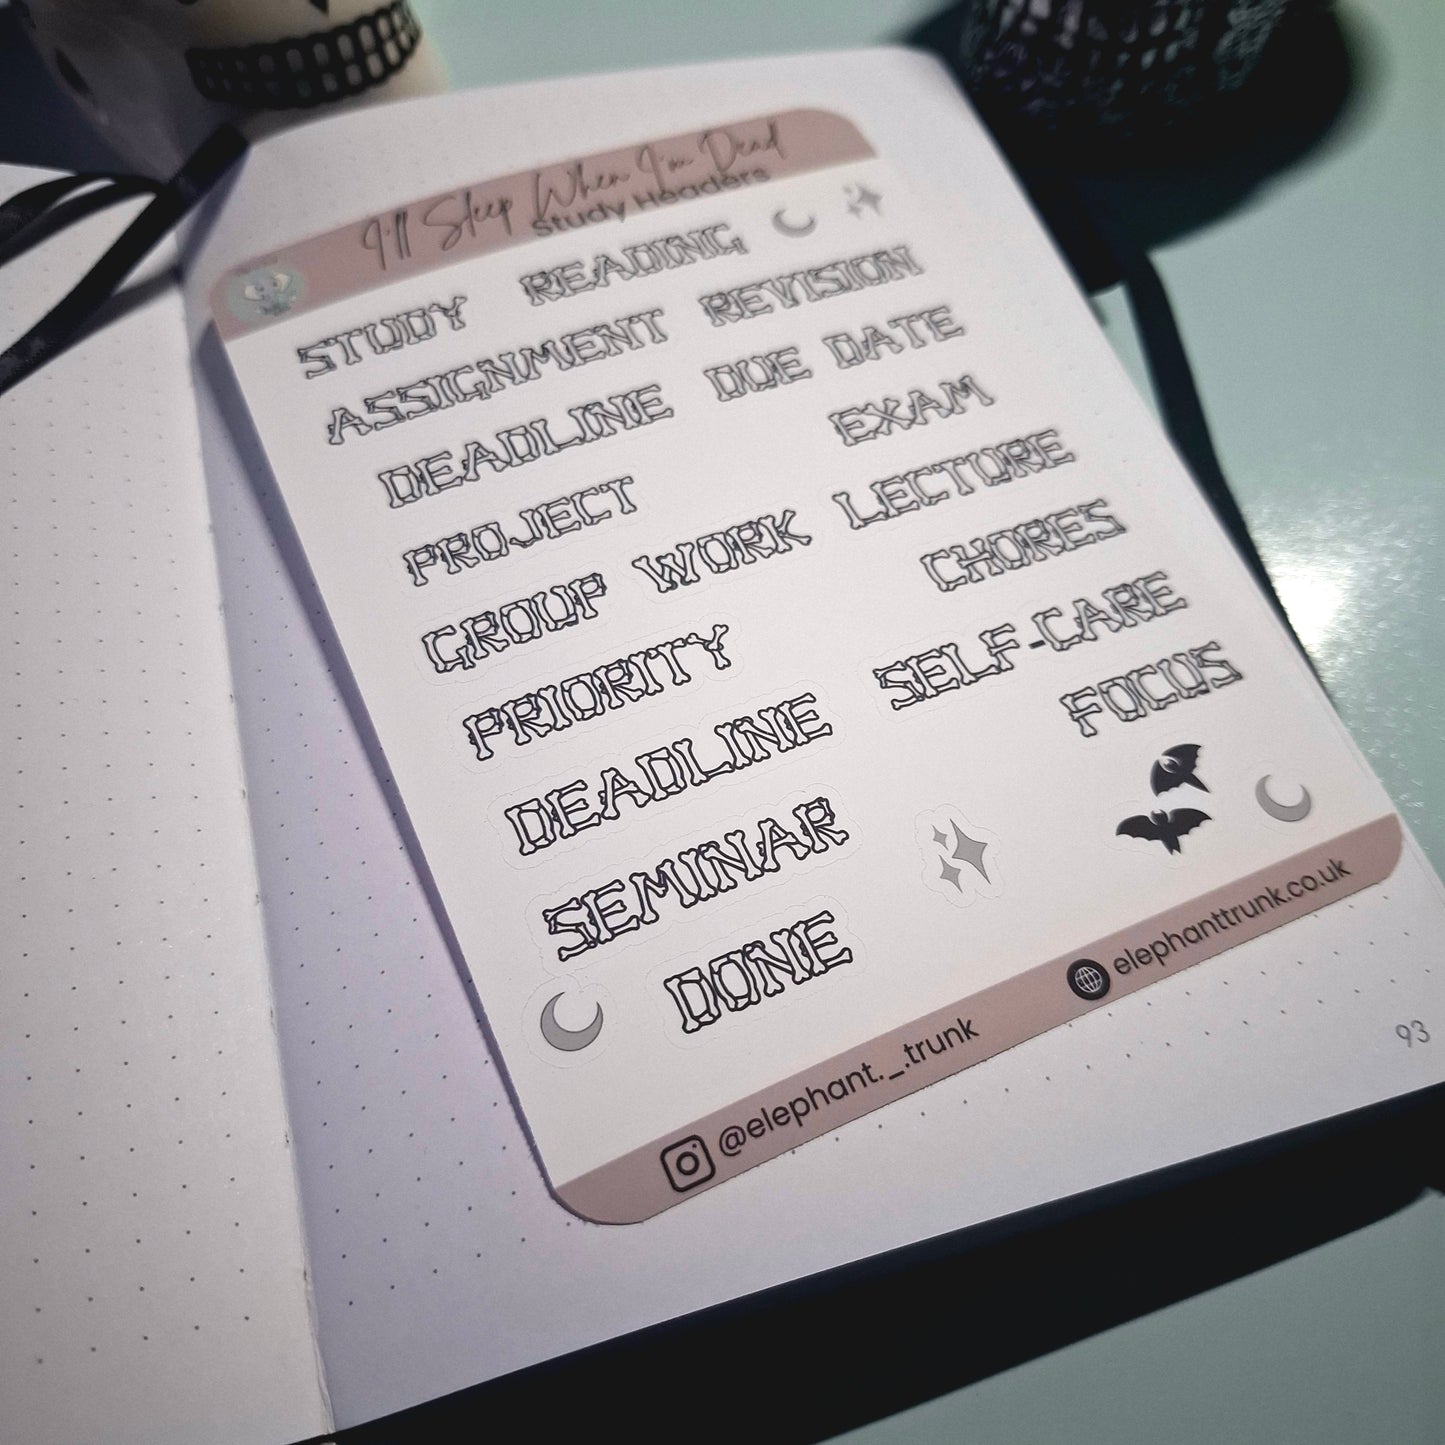 I'll Sleep When I'm Dead
Study Headers
STUDY READING
ASSIGNMENT REVISION
DEADLINE DUE DATE
PROJECT EXAM
GROUP WORK LECTURE
PRIORITY CHORES
DEADLINE SELF-CARE
SEMINAR FOCUS
DONE
@elephant._.trunk elephanttrunk.co.uk
93